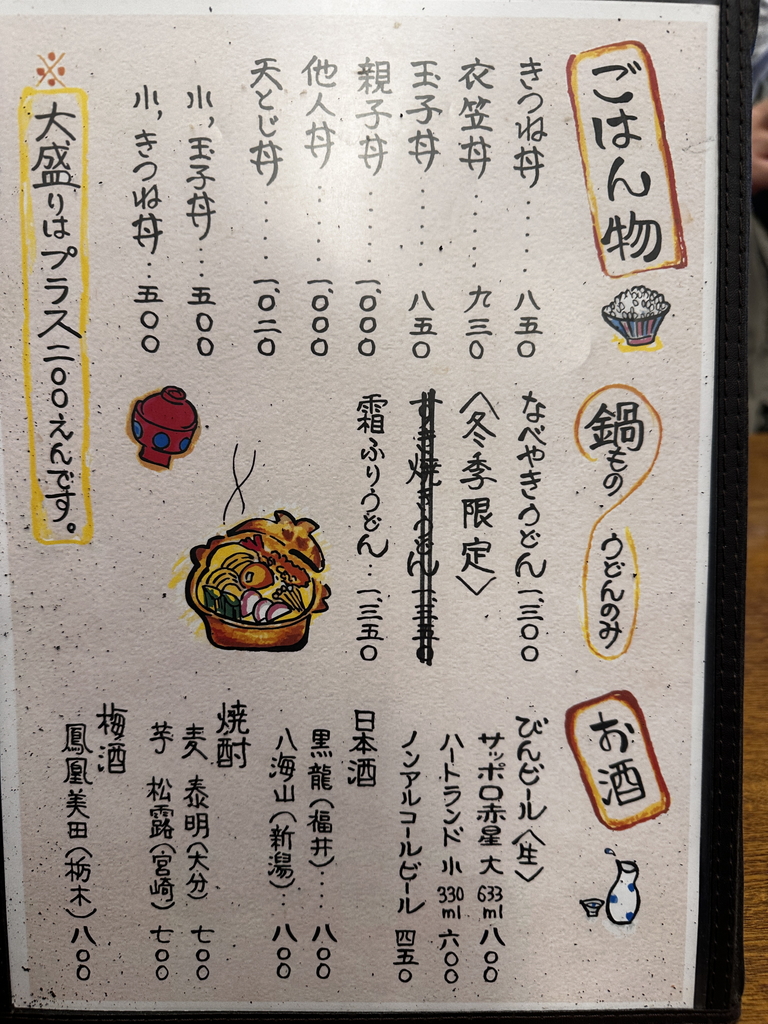 ごはん物
きつね丼......八五〇
衣笠丼......九三〇
玉子丼.....八五〇
親子丼.....一、〇〇〇
他人丼.....一、〇〇〇
天とじ丼.....一、〇二〇
小，玉子丼...五〇〇
小，きつね丼..五〇〇
※大盛りはプラス二〇〇えんです。
鍋もの うどんのみ
なべやきうどん 一、三〇〇
〈冬季限定〉
すき焼きうどん 一、三五〇
霜ふりうどん..一、三五〇
お酒
びんビール〈生〉
サッポロ赤星 大 633ml 八〇〇
ハートランド 小 330ml 六〇〇
ノンアルコールビール 四五〇
日本酒
黒龍(福井)....八〇〇
八海山(新潟)..八〇〇
焼酎
麦 泰明(大分) 七〇〇
芋 松露(宮崎) 七〇〇
梅酒
鳳凰美田(栃木) 八〇〇